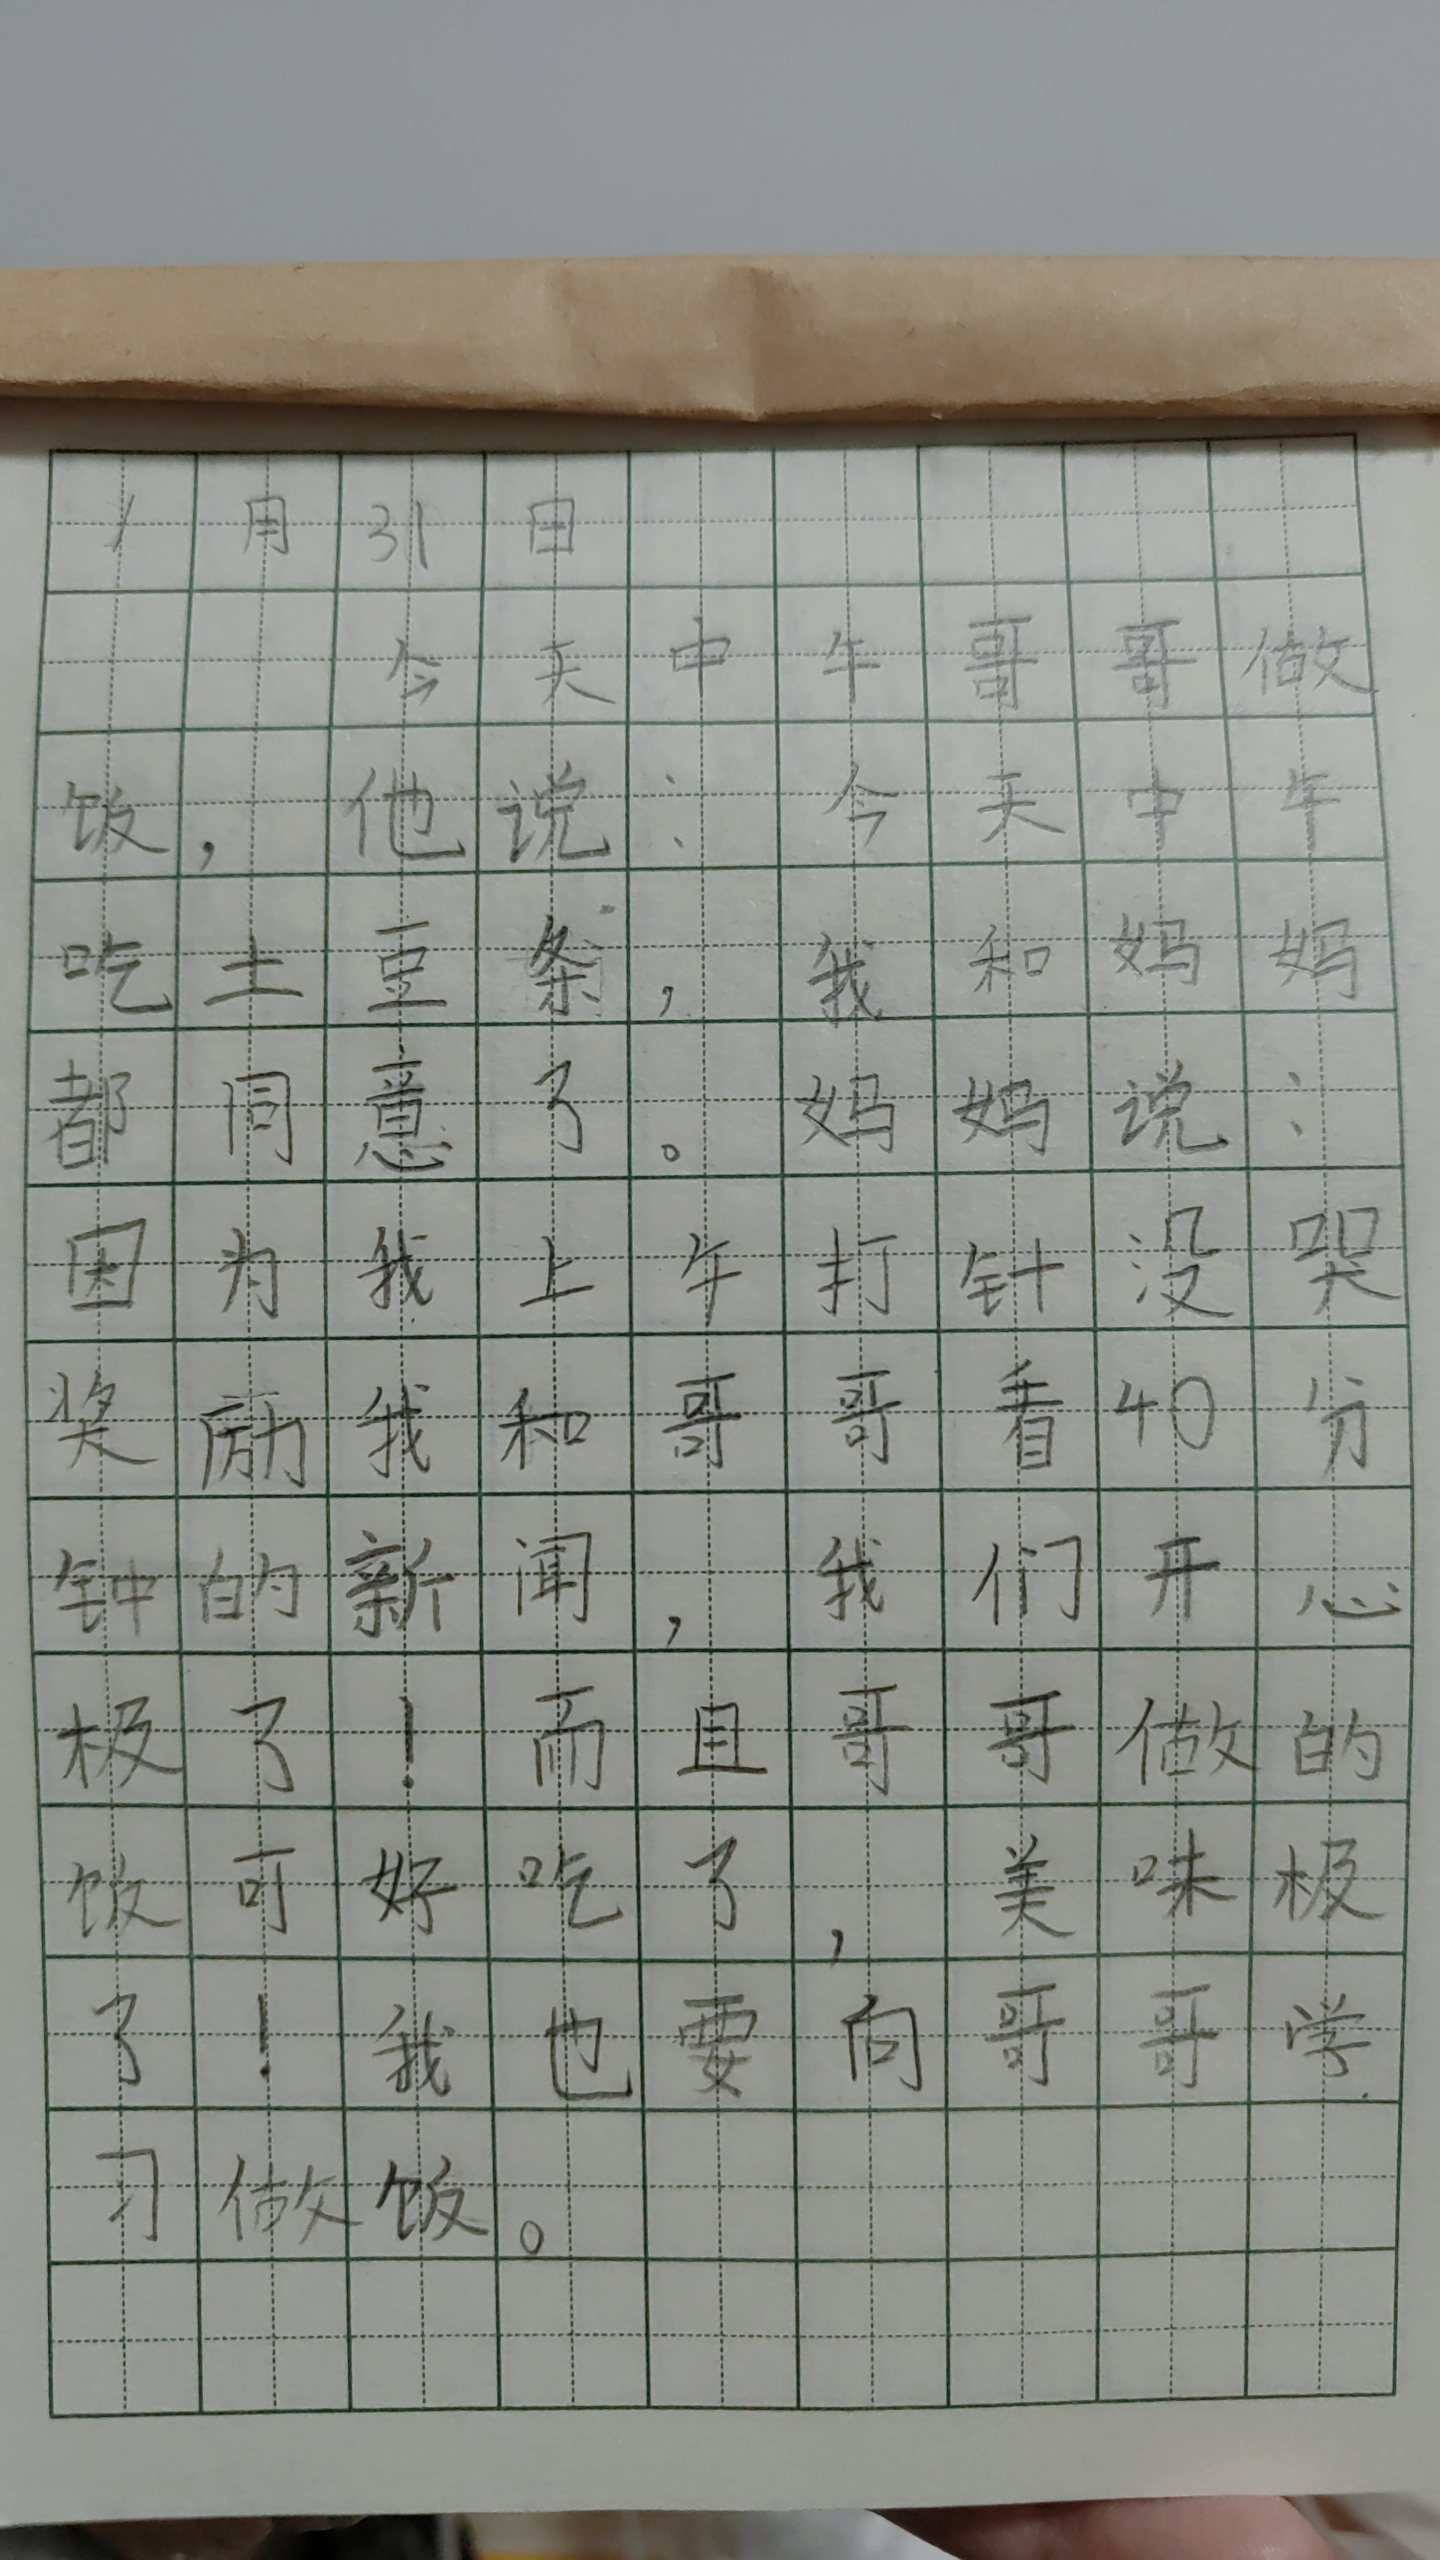 1月31日
今天中午哥哥做
饭，他说：今天中午
吃土豆条，我和妈妈
都同意了。妈妈说：
因为我上午打针没哭
奖励我和哥哥看40分
钟的新闻，我们开心
极了！而且哥哥做的
饭可好吃了，美味极
了！我也要向哥哥学
习做饭。